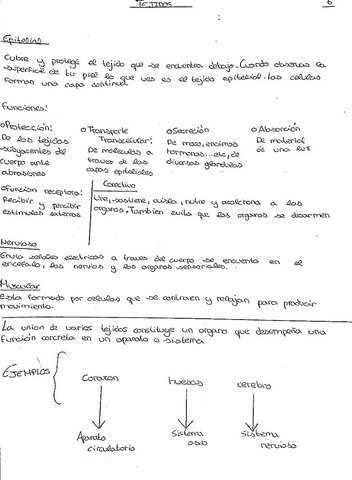 TEJIDOS
6
Epitelial
Cubre y protege el tejido que se encuentra debajo. Cuando observas la
superficie de tu piel lo que ves es el tejido epitelial. Las células
forman una capa continua
Funciones:
o Protección:
De los tejidos
subyacentes del
cuerpo ante
abrasiones
o Transporte
Transcelular:
De moleculas a
traves de las
capas epiteliales
o Secreción
De moco, encimas
hormonas...etc, de
diversas glandulas
o Absorción
De material
de una luz
o Funcion receptora:
Recibir y percibir
estimulos externos
Conectivo
Une, sostiene, aisla, nutre y a los
organos. Tambien evita que los organos se deformen
Nervioso
Envia señales electricas a traves del cuerpo se encuentra en el
encefalo, los nervios y los organos sensoriales.
Muscular
Esta formado por celulas que se contraen y relajan para producir
movimiento.
La union de varios tejidos constituye un organo que desempeña una
función concreta en un aparato o sistema
EJEMPLOS
Corazon
huesos
cerebro
Aparato
circulatorio
Sistema
oseo
Sistema
nervioso